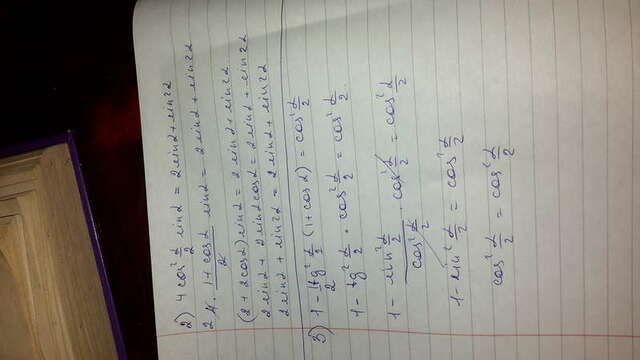 2) 4 cos² α/2 sin α = 2 sin α + sin 2α
2 4 · (1 + cos α)/2 sin α = 2 sin α + sin 2α
(2 + 2 cos α) sin α = 2 sin α + sin 2α
2 sin α + 2 sin α cos α = 2 sin α + sin 2α
2 sin α + sin 2α = 2 sin α + sin 2α
3) 1 - 1/2 tg² α/2 (1 + cos α) = cos² α/2
1 - tg² α/2 · cos² α/2 = cos² α/2
1 - (sin² α/2)/(cos² α/2) · cos² α/2 = cos² α/2
1 - sin² α/2 = cos² α/2
cos² α/2 = cos² α/2